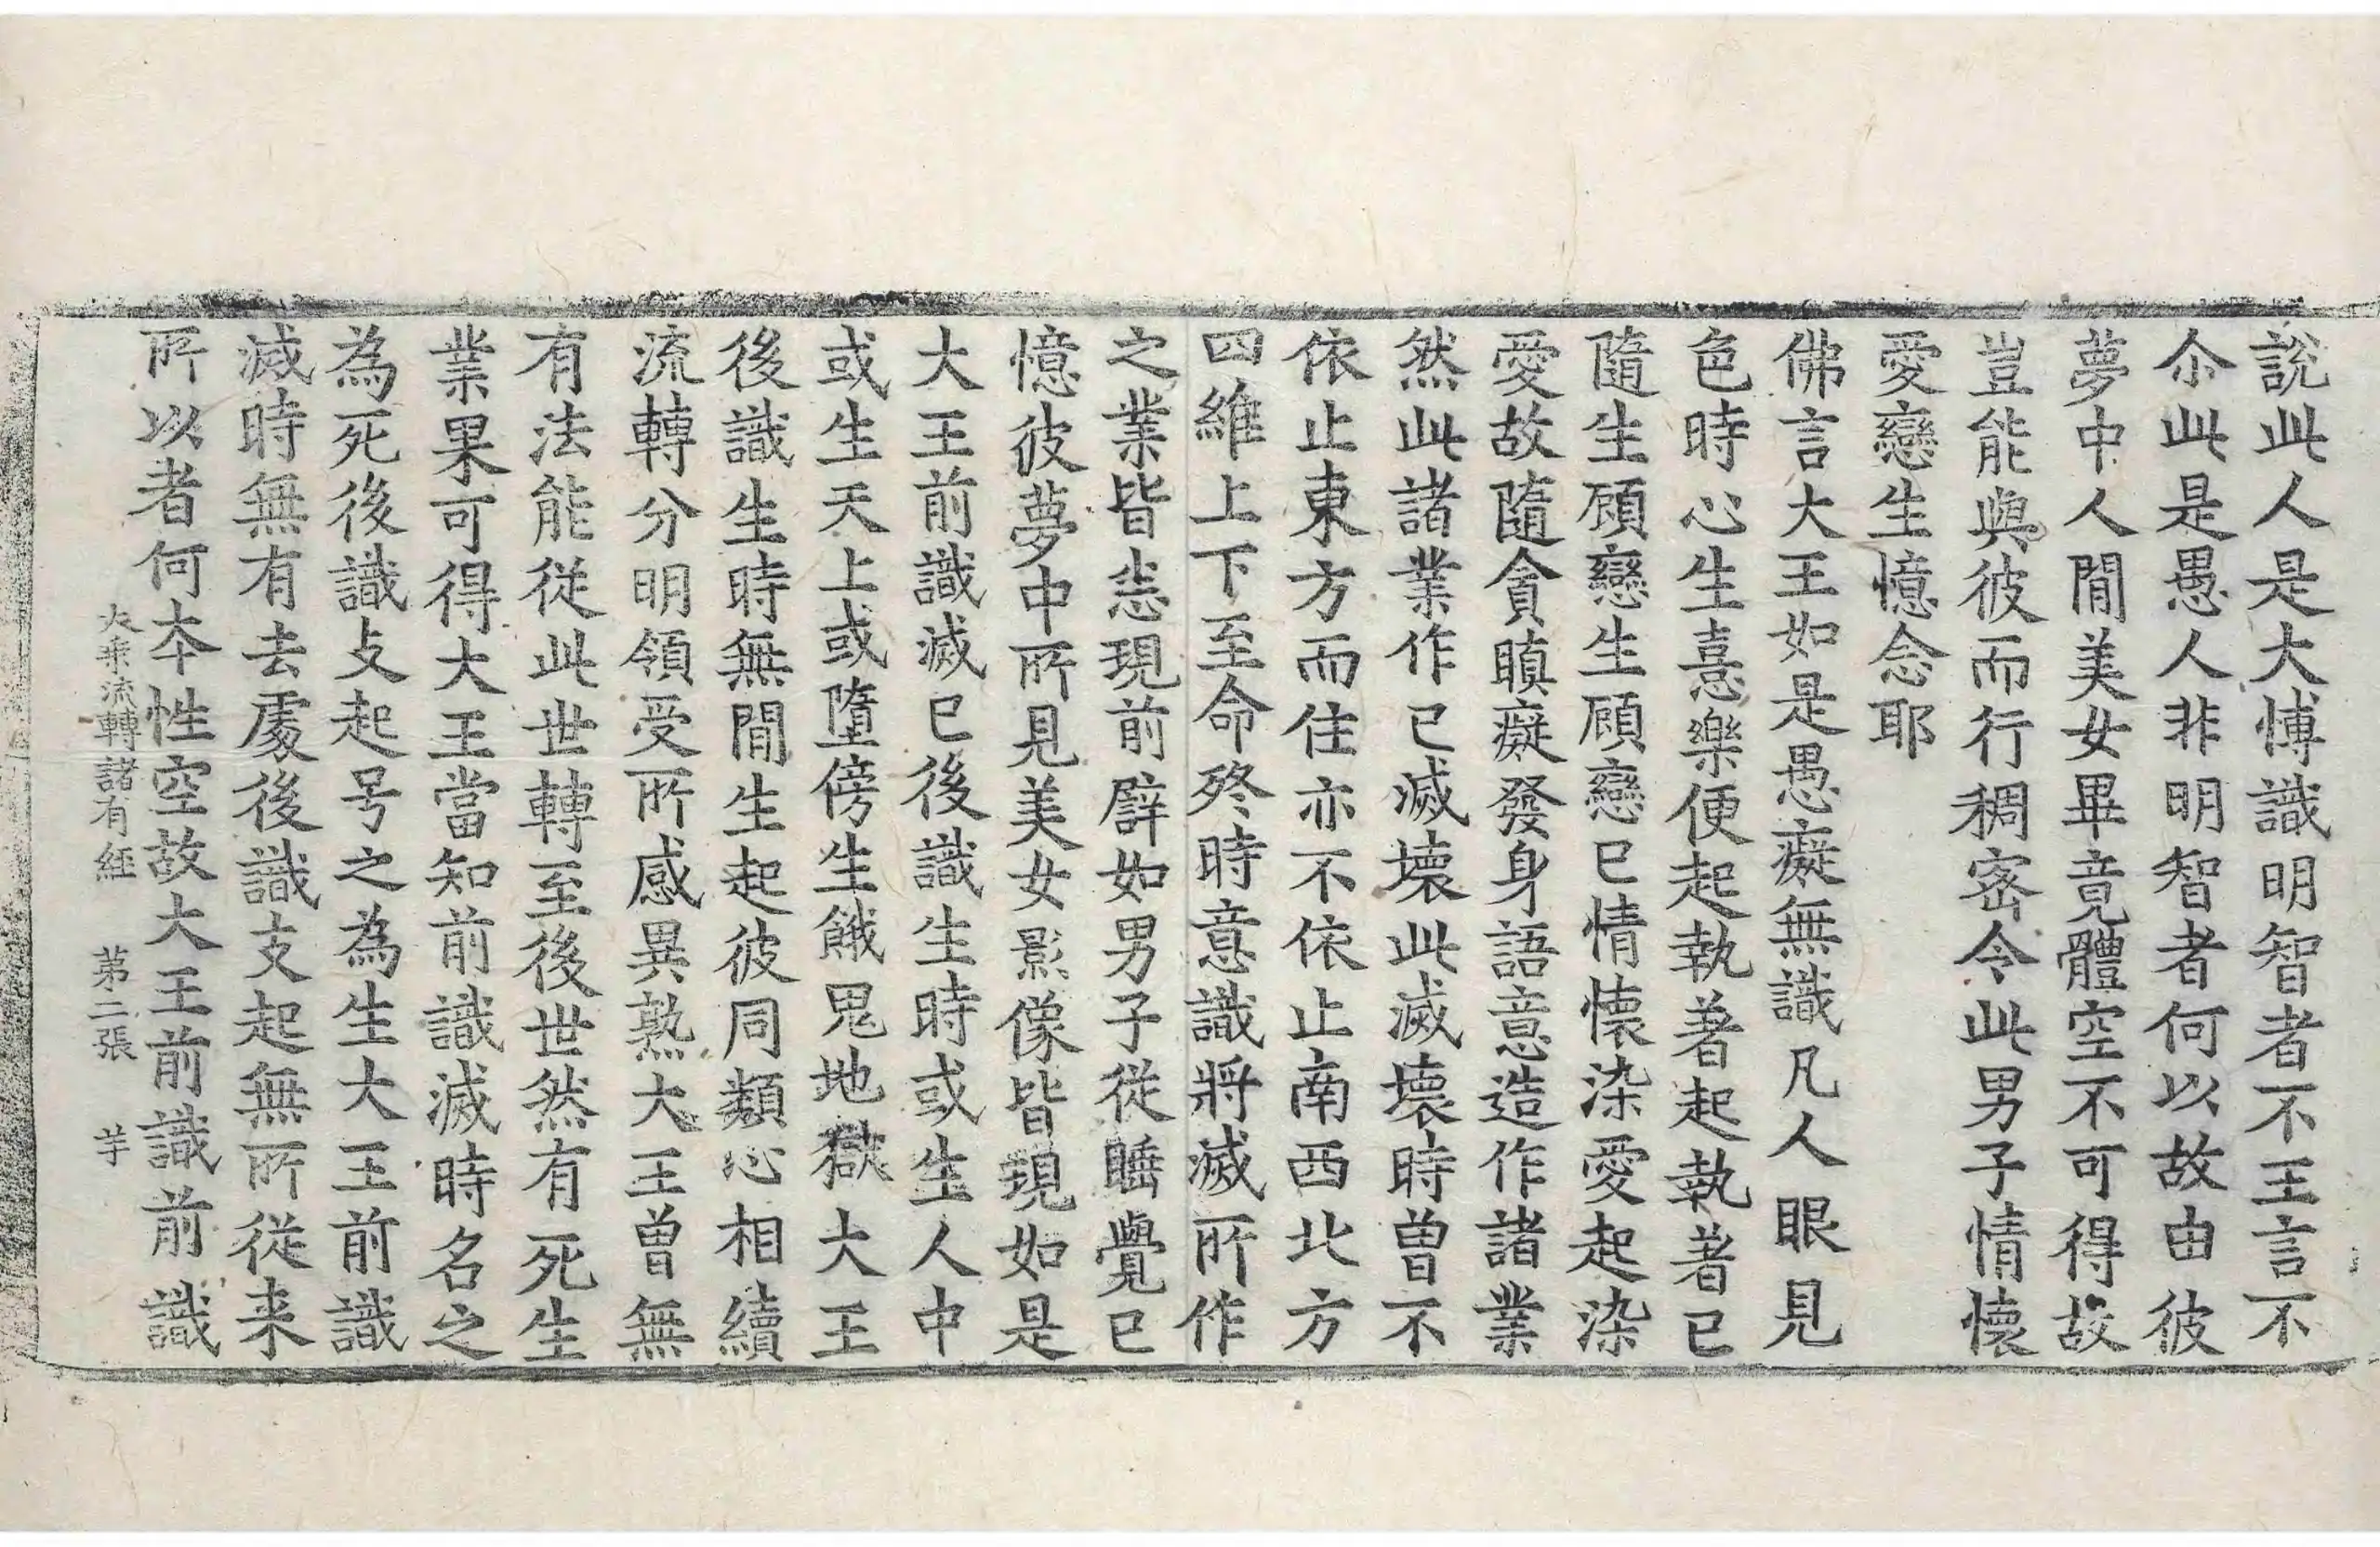 說此人是大慱識明智者不王言不
尒此是愚人非明智者何以故由彼
夢中人閒美女畢竟體空不可得故
豈能與彼而行稠密令此男子情懷
愛戀生憶念耶
佛言大王如是愚癡無識凡人眼見
色時心生憙樂便起執著起執著已
隨生顧戀生顧戀已情懷染愛起染
愛故隨貪瞋癡發身語意造作諸業
然此諸業作已滅壞此滅壞時曾不
依止東方而住亦不依止南西北方
四維上下至命終時意識將滅所作
之業皆悉現前譬如男子從睡覺已
憶彼夢中所見美女影像皆現如是
大王前識滅已後識生時或生人中
或生天上或墮傍生餓鬼地獄大王
後識生時無閒生起彼同類心相續
流轉分明領受所感異熟大王曾無
有法能從此世轉至後世然有死生
業果可得大王當知前識滅時名之
為死後識支起号之為生大王前識
滅時無有去處後識支起無所從来
所以者何本性空故大王前識前識
大乘流轉諸有經 第二張 羊